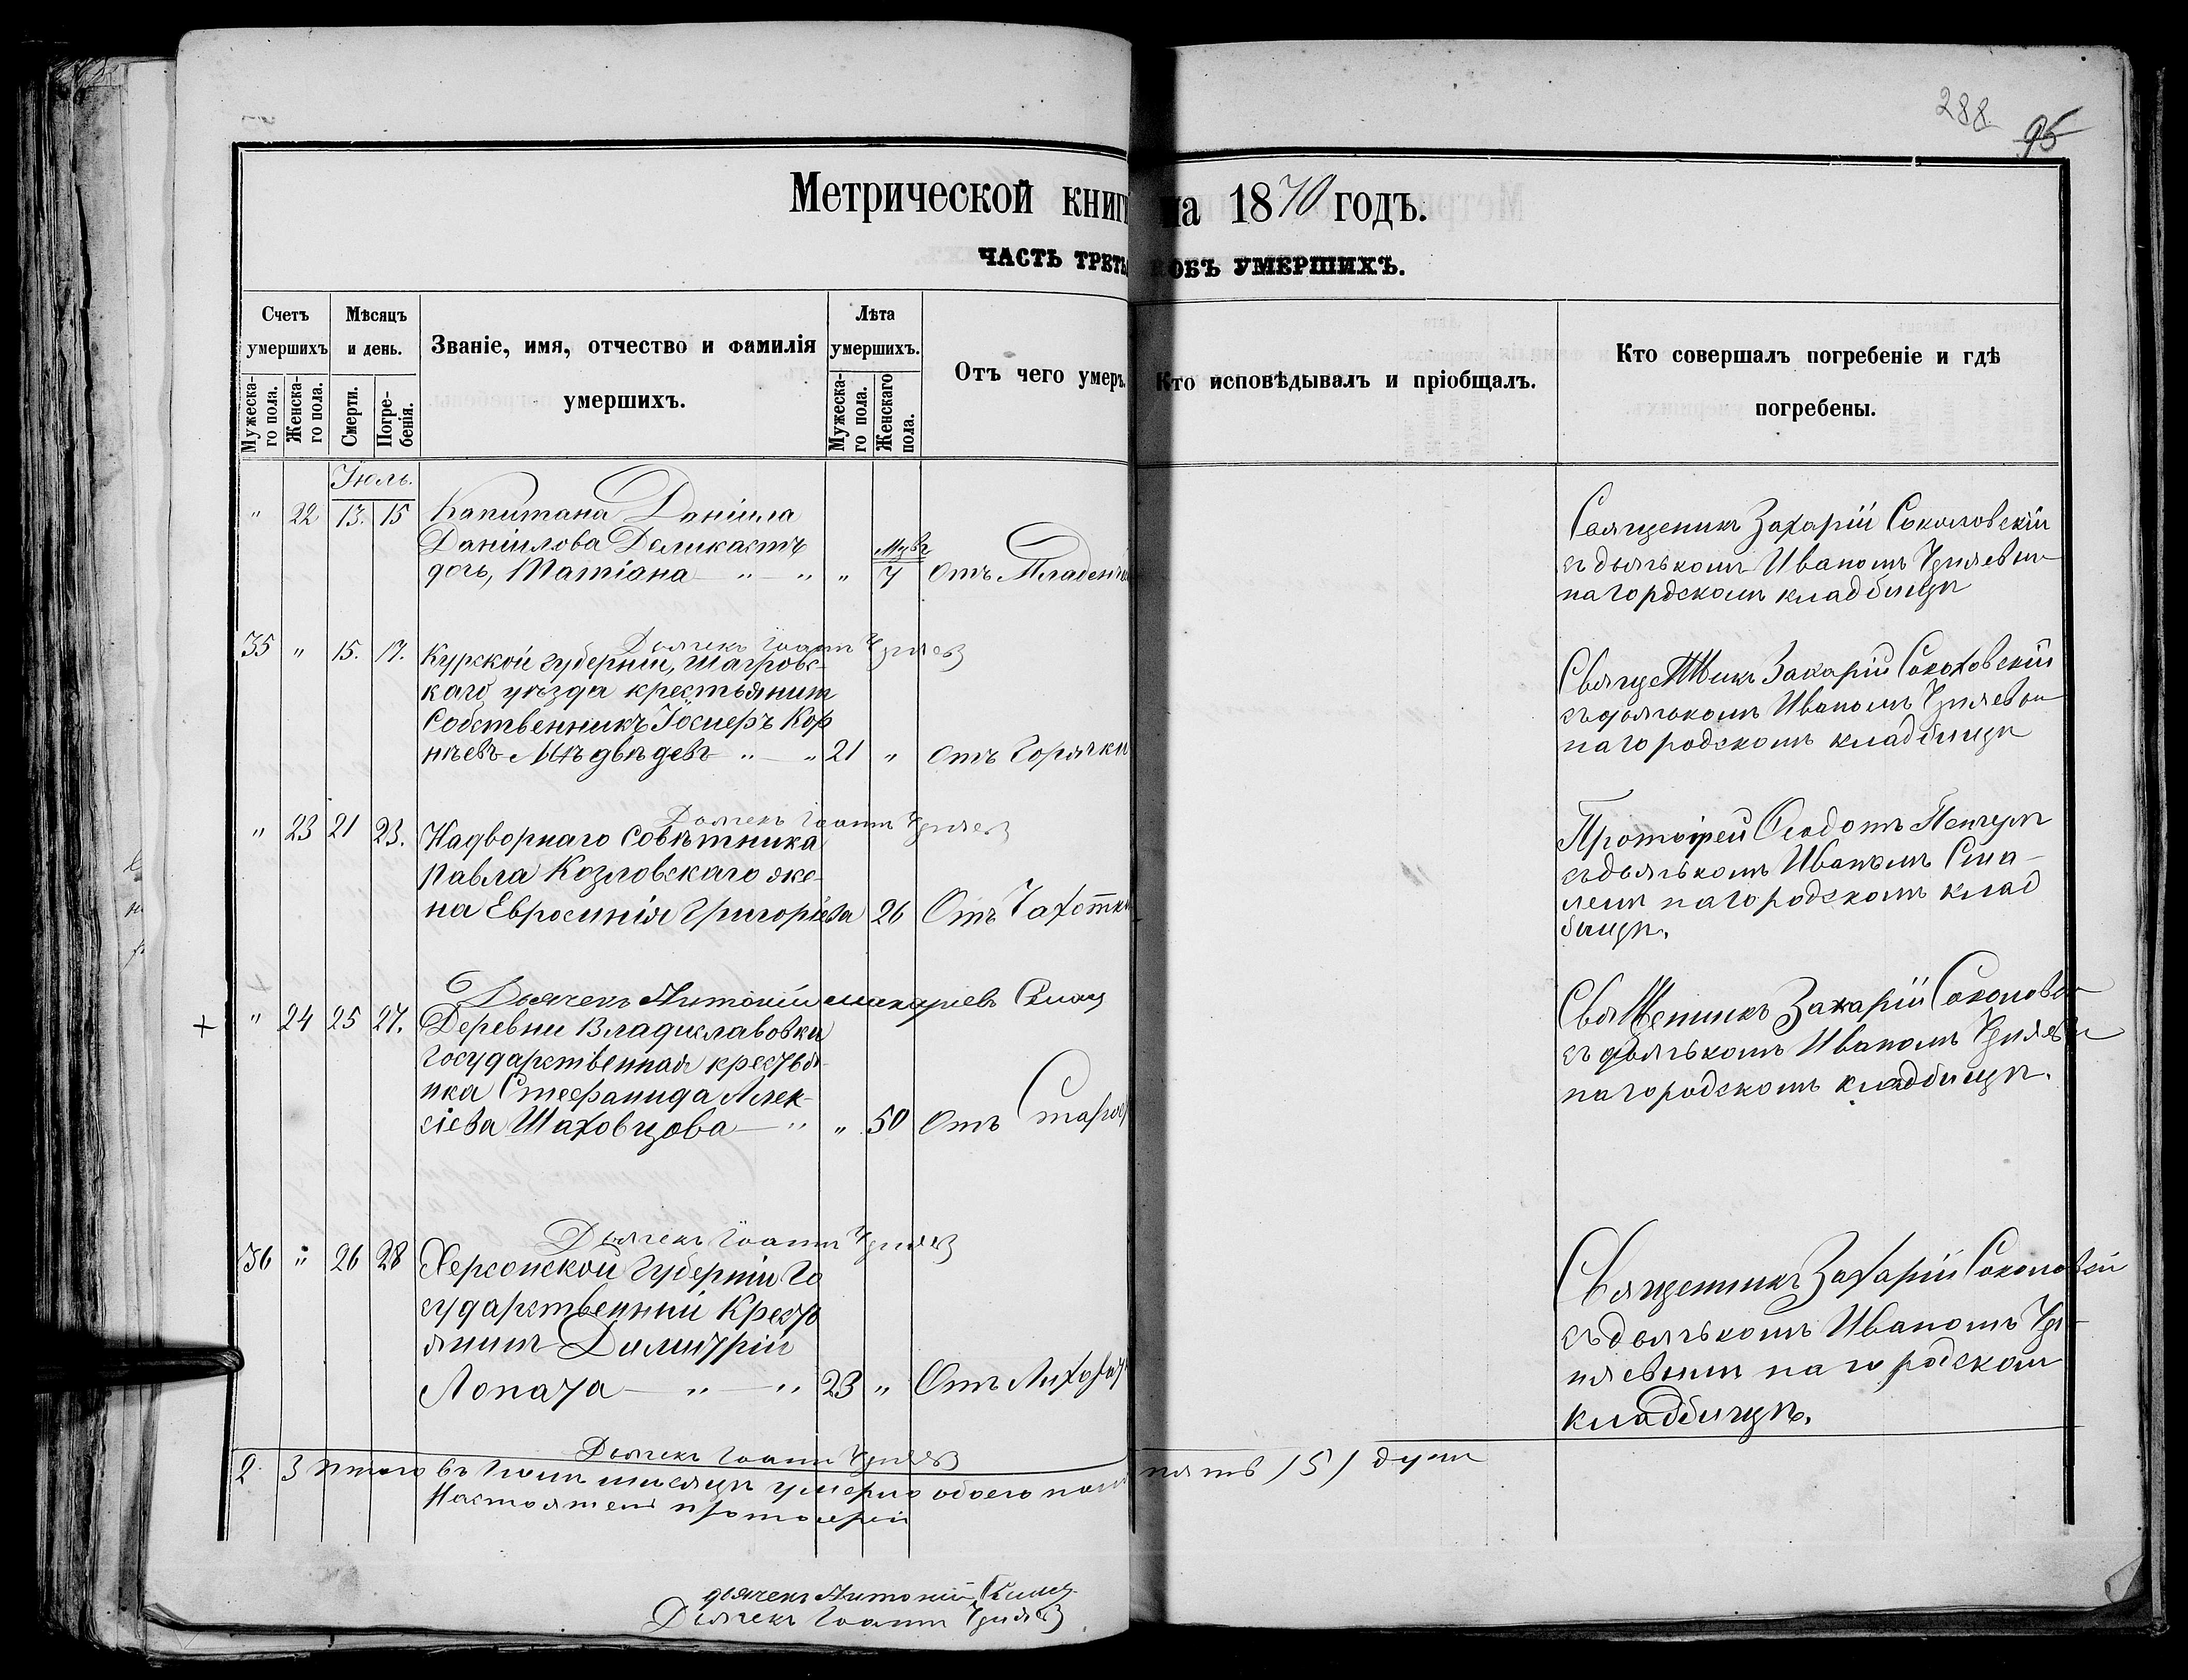 288
95
Метрической книг на 1870 годъ.
ЧАСТЬ ТРЕТЬ ОБЪ УМЕРШИХЪ.
Счетъ умершихъ
Мужеска-го пола.
Женска-го пола.
Мѣсяцъ и день.
Смерти.
Погре-бенія.
Званіе, имя, отчество и фамилія умершихъ.
Лѣта умершихъ.
Мужеска-го пола.
Женскаго пола.
Отъ чего умеръ.
Кто исповѣдывалъ и пріобщалъ.
Кто совершалъ погребеніе и гдѣ погребены.
Іюль.
" 22 13. 15 Капитана Даніила
Даніилова Деликастъ
дочь, Татіана — " — " " 7 Отъ Младенч
Священикъ Захарій Соколовскій
съ дьячькомъ Иваномъ
на гордскомъ кладбищѣ
Дьячекъ Іоаннъ
35 " 15. 17. Курской губерніи, Щагровс-
каго уѣзда крестьянинъ
Собственникъ Іосиеръ Кор
нѣевъ Мѣдвѣдевъ " — " 21 " Отъ Горячки
Священникъ Захарій Соколовскій
съ дьячькомъ Иваномъ
на городскомъ кладбищѣ
Дьячекъ Іоаннъ
" 23 21 23. Надворнаго Совѣтника
Павла Козловскаго же-
на Евросинія Григоріева 26 Отъ Чахотки
Протоірей Ѳеодотъ
съ дьячькомъ Иваномъ
на городскомъ клад
бищѣ.
Дьячекъ Антоній Макаріевъ
+ " 24 25 27. Деревни Владиславовки
Государственная крестья-
нка Стефанида Алек-
сіева Шаховцова — " " 50 Отъ Старос
Священикъ Захарій Соколовск
съ дьячькомъ Иваномъ
на городскомъ кладбищѣ.
Дьячекъ Іоаннъ
36 " 26 28 Херсонской Губерніи Го
сударственний Крестъ
янинъ Димитрій
Лопата — " — " 23 " Отъ Лихорат
Священникъ Захарій Соколовскій
съ дьячькомъ Иваномъ
на городскомъ
кладбищѣ.
Дьячекъ Іоаннъ
2. 3 Итого въ Іюлѣ мѣсяцѣ умерло обоего пола пять /5/ душъ
Настоятель протоиерей
дьячекъ Антоній
Дьячекъ Іоаннъ